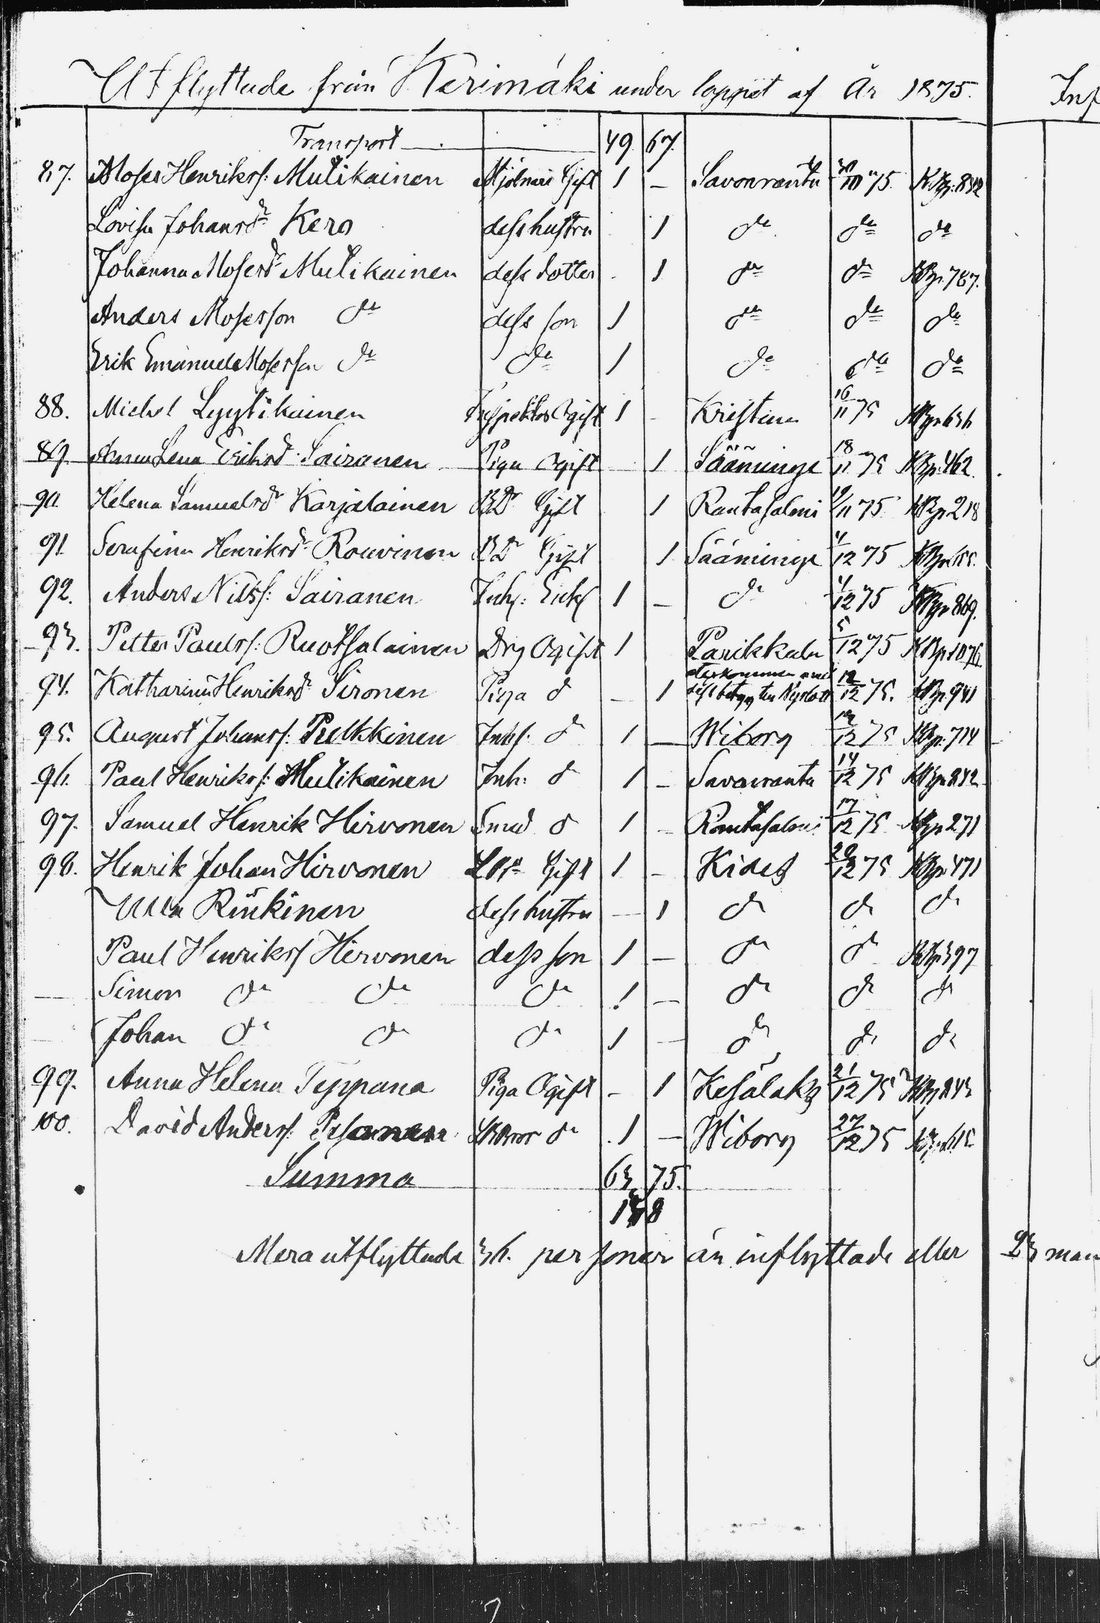 Utflyttade från Kerimäki under loppet af År 1875.
Inf
Transport 49. 67.
87. Moses Henrikss: Mulikainen Mjölnare Gift 1 – Savonranta 30/10 75. KBp. 842
Lovisa Johansdr Kero dess hustru 1 do do do
Johanna Mosesdr Mulikainen dess dotter 1 do do KBp. 787.
Anders Mosesson do dess son 1 do do do
Erik Emanuel Mosesson do do 1 do do do
88. Michel Lyytikainen Ogift 1 Kristina 16/11 75
89. Anna Lena Eriksdr Sairanen Piga Ogift 1 Sääminge 18/11 75 KBp. 462.
90. Helena Samuelsdr Karjalainen BDr Gift 1 Rantasalmi 19/11 75 KBp. 218
91. Serafina Henriksdr Rouvinen BDr Gift 1 Sääminge 4/12 75
92. Anders Nilss: Sairanen Inh: 1 – do 4/12 75 KBp. 869.
93. Petter Paulss: Ruotsalainen Drg Ogift 1 Parikkala 5/12 75 KBp. 1076.
94. Katharina Henriksdr Sironen Piga do – 1 12/12 75. KBp. 941
95. August Johanss: Pulkkinen Inhs. do 1 – Wiborg 12/12 75 KBp. 714
96. Paul Henrikss: Mulikainen Inh: do 1 – Savonranta 14/12 75 KBp. 842
97. Samuel Henrik Hirvonen Smed do 1 – Rantasalmi 17/12 75 KBp. 271
98. Henrik Johan Hirvonen Gift 1 – Kides 20/12 75 KBp. 471
Ulla Rinkinen dess hustru – 1 do do do
Paul Henrikss Hirvonen dess son 1 – do do KBp. 397
Simon do do do 1 – do do do
Johan do do do 1 do do do
99. Anna Helena Teppana Piga Ogift – 1 Kesälaks 21/12 75
100. David Anderss: Pesonen do 1 – Wiborg 27/12 75
Summa 63. 75.
138
Mera utflyttade 36. personer än inflyttade eller 23 man